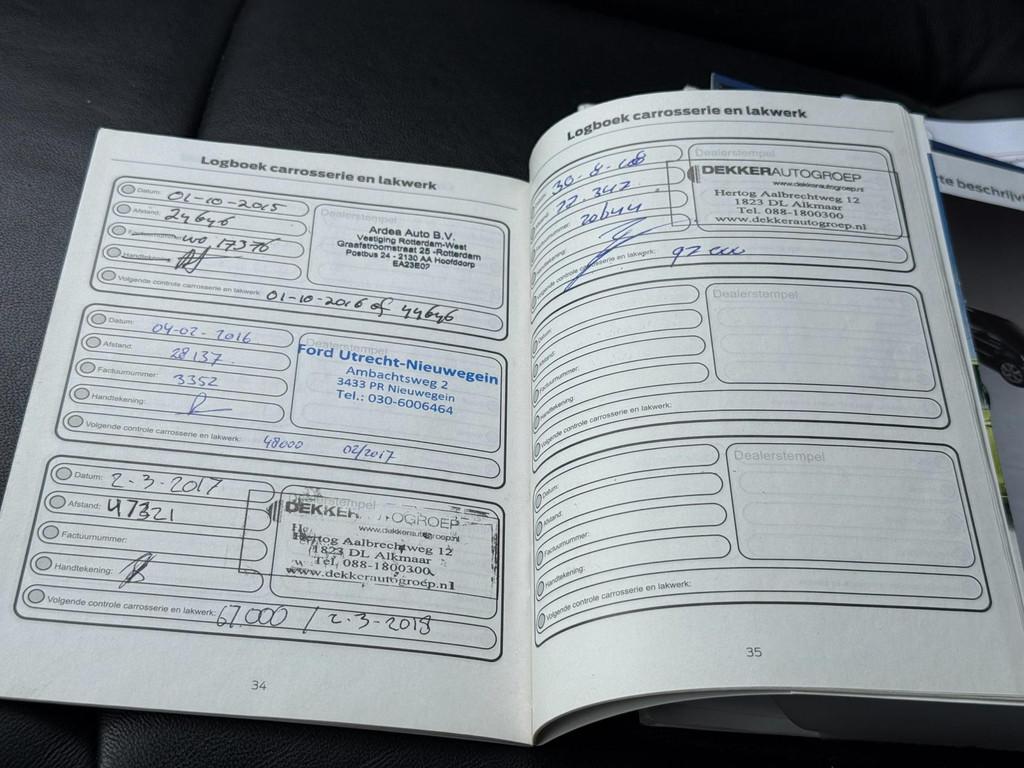 Logboek carrosserie en lakwerk
Datum: 01-10-2015
Afstand: 24646
Factuurnummer: wo 17376
Handtekening:
Dealerstempel
Ardea Auto B.V.
Vestiging Rotterdam-West
Graafstroomstraat 25 -Rotterdam
Postbus 24 - 2130 AA Hoofddorp
EA23E07
Volgende controle carrosserie en lakwerk: 01-10-2016 of 44646
Datum: 04-02-2016
Afstand: 28137
Factuurnummer: 3352
Handtekening:
Dealerstempel
Ford Utrecht-Nieuwegein
Ambachtsweg 2
3433 PR Nieuwegein
Tel.: 030-6006464
Volgende controle carrosserie en lakwerk: 48000 02/2017
Datum: 2-3-2017
Afstand: 47321
Factuurnummer:
Handtekening:
Dealerstempel
DEKKER OGROEP
www.dekkerautogroep.nl
Hertog Aalbrechtweg 12
1823 DL Alkmaar
Tel. 088-1800300
www.dekkerautogroep.nl
Volgende controle carrosserie en lakwerk: 67.000 / 2-3-2018
34
Logboek carrosserie en lakwerk
Dealerstempel
DEKKERAUTOGROEP
www.dekkerautogroep.nl
Hertog Aalbrechtweg 12
1823 DL Alkmaar
Tel. 088-1800300
www.dekkerautogroep.nl
Volgende controle carrosserie en lakwerk:
Datum:
Afstand:
Factuurnummer:
Handtekening:
Dealerstempel
Volgende controle carrosserie en lakwerk:
Datum:
Afstand:
Factuurnummer:
Handtekening:
Dealerstempel
Volgende controle carrosserie en lakwerk:
35
te beschrijv